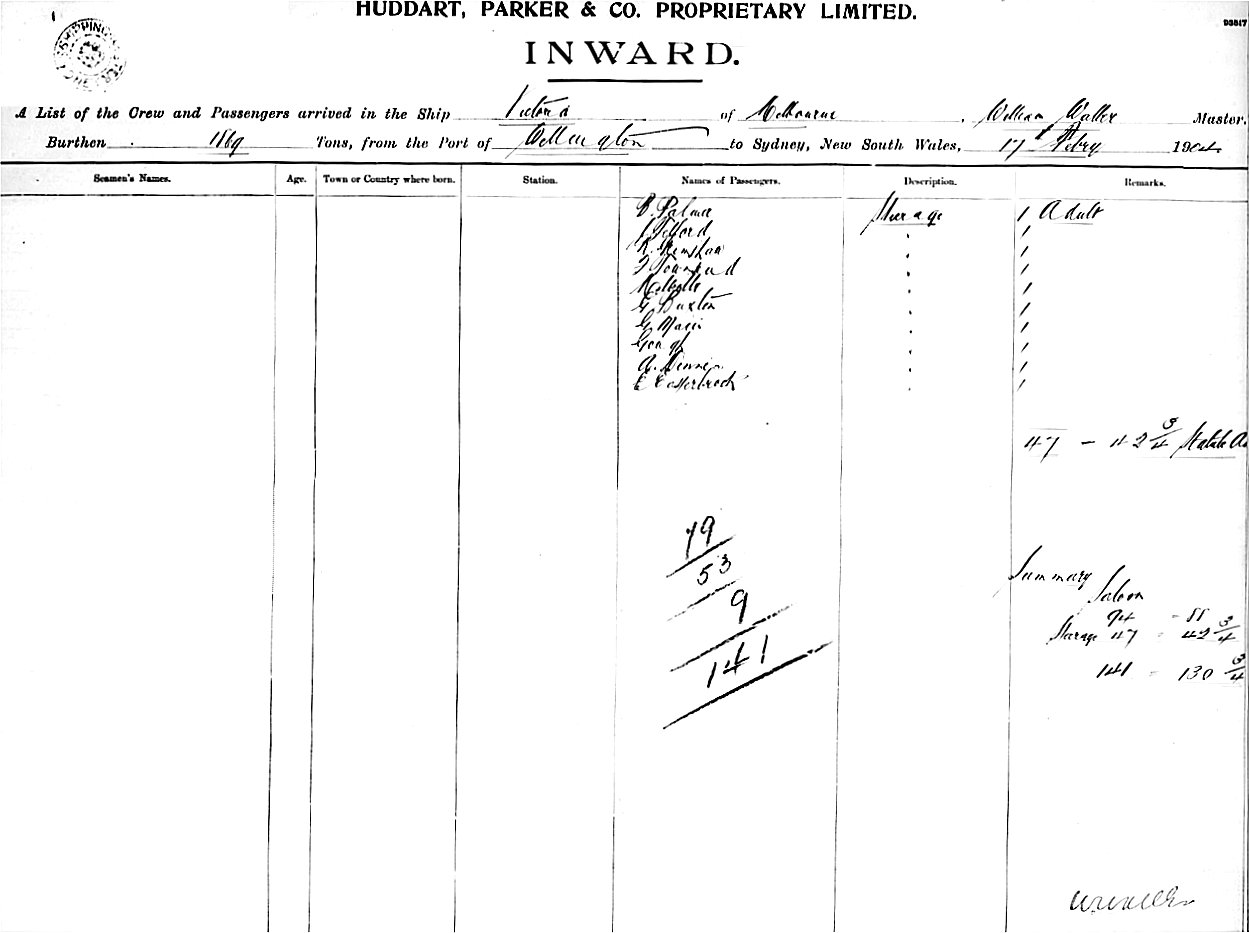 HUDDART, PARKER & CO. PROPRIETARY LIMITED.
93517
INWARD.
SHIPPING MASTER
A List of the Crew and Passengers arrived in the Ship Victoria of Melbourne, William Waller Master.
Burthen 1869 Tons, from the Port of Wellington to Sydney, New South Wales, 17 Febry 190
Seamen's Names. Age. Town or Country where born. Station. Names of Passengers. Description. Remarks.
Steerage 1 Adult
J Telford 1
R. Renshaw 1
T Townsend 1
1
G. Buxton 1
1
1
1
E Easterbrook 1
47 - 42 3/4 Statute A
79
53
9
141
Summary
Saloon
94 - 88
Steerage 47 - 42 3/4
141 - 130 3/4